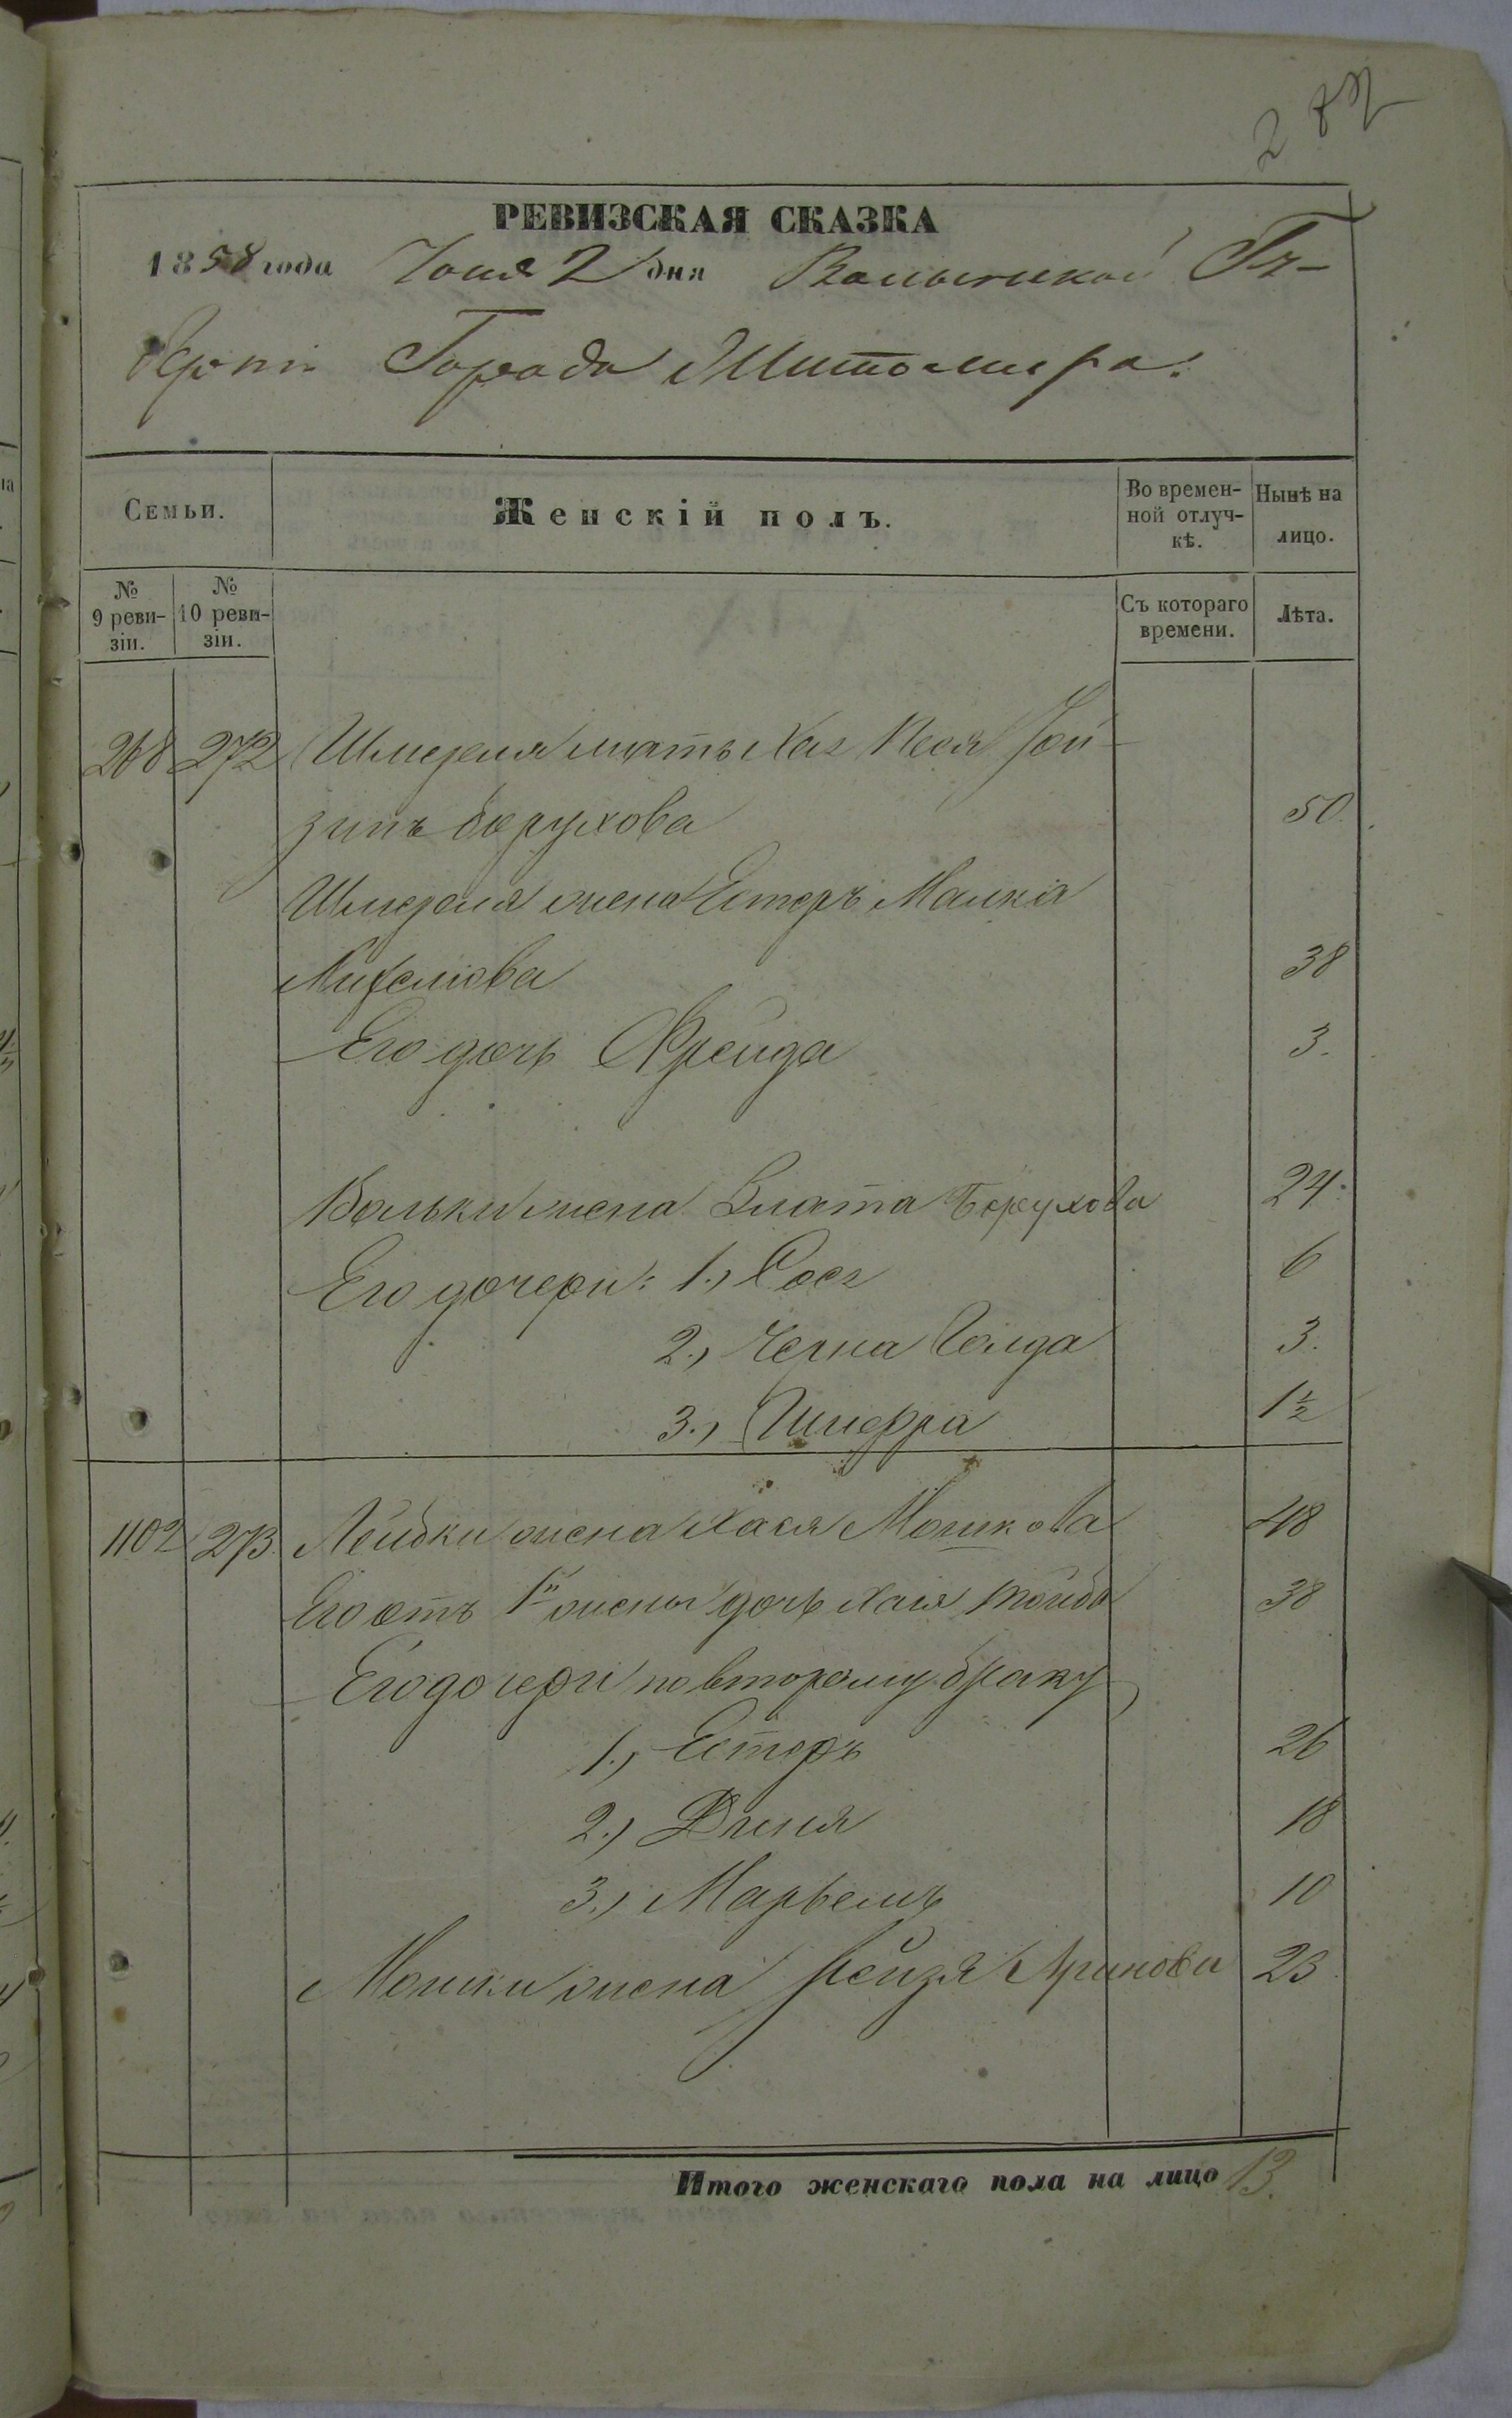 РЕВИЗСКАЯ СКАЗКА
1858 года Іюня 2 дня Волынской Гу-
берніи Города Житомира.
Семьи.
Женскій полъ.
Во времен-
ной отлуч-
кѣ.
Нынѣ на
лицо.
№
9 реви-
зіи.
№
10 реви-
зіи.
Съ котораго
времени.
Лѣта.
268 272 Шмереля мать Хая Песя Рой-
зинъ Борухова 50.
Шмереля жена Естеръ Малка
38
Его дочь Фрейда 3.
Вольки жена Злата Борухова 24.
Его дочери: 1., Сося 6
2., Черна Голда 3.
3., Шифра 1½
1102 273. Лейбки жена Хася Мошкова 48
Его отъ 1й жены дочь Хая Тойба 38
Его дочери по второму браку
1., Естеръ 26
2., Двися 18
3., Марьемъ 10
Мошки жена Рейзя 23
Итого женскаго пола на лицо 13.